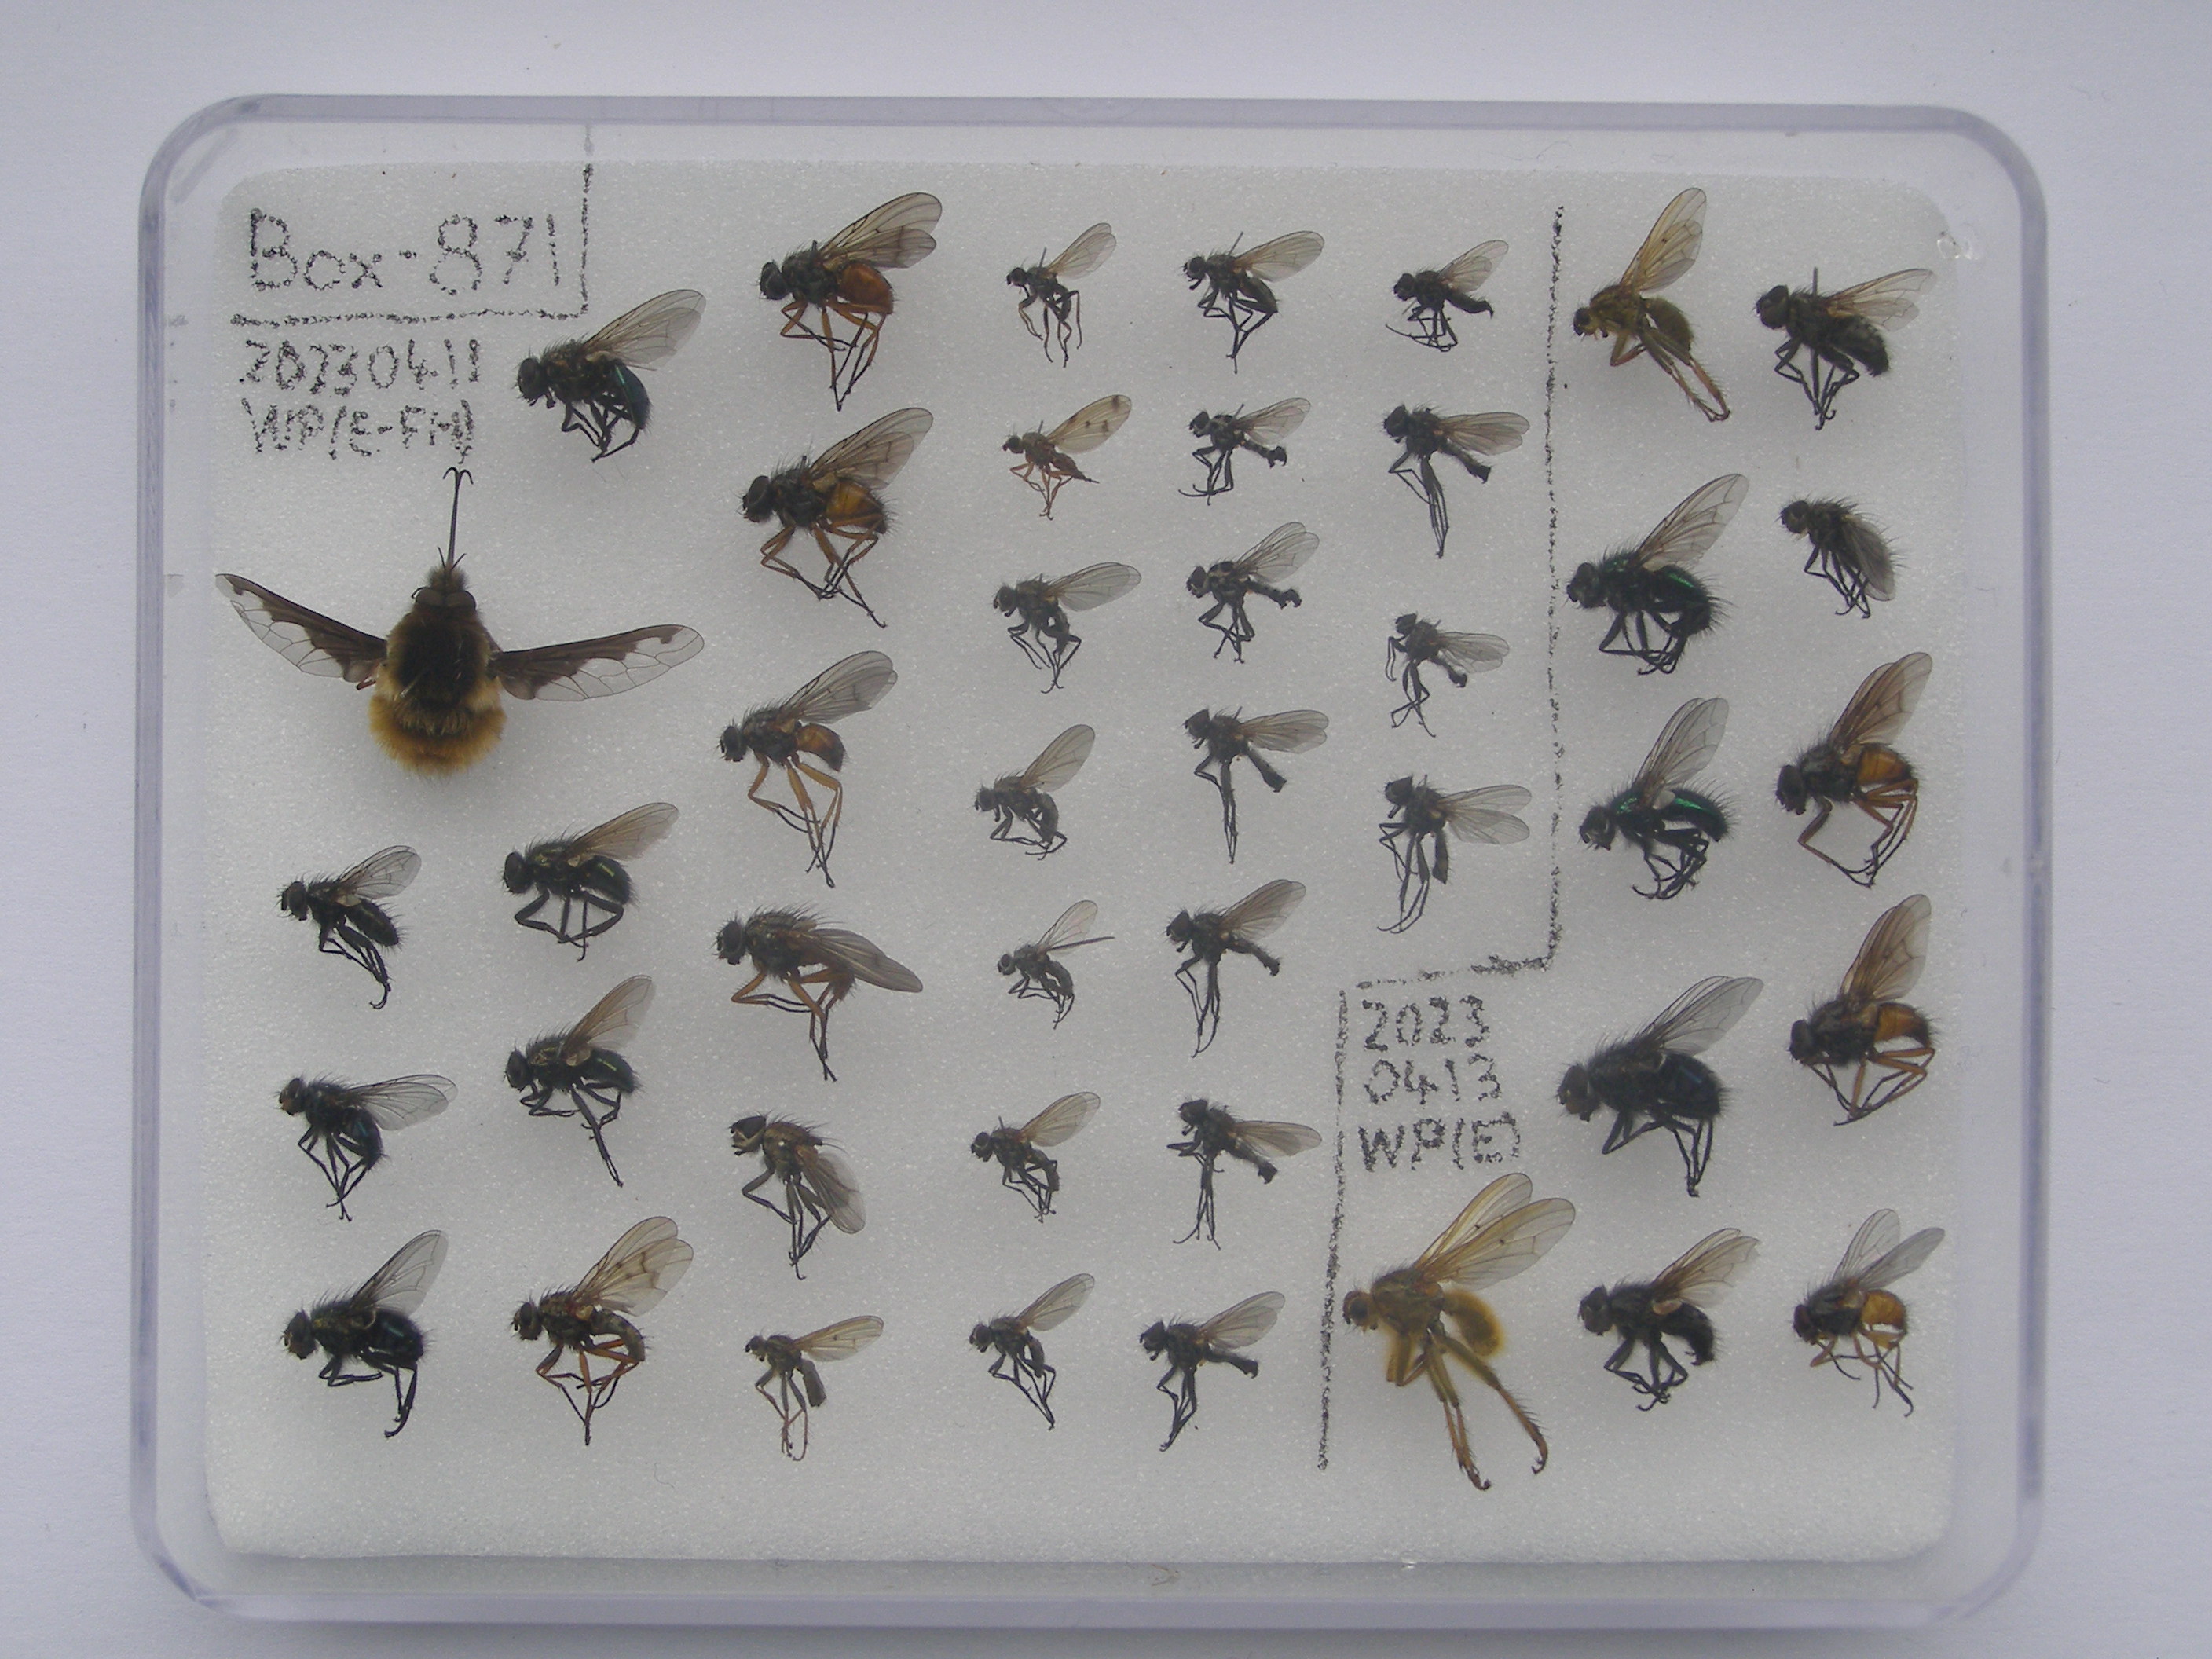 Box-871
20230411
2023
0413
WP(E)